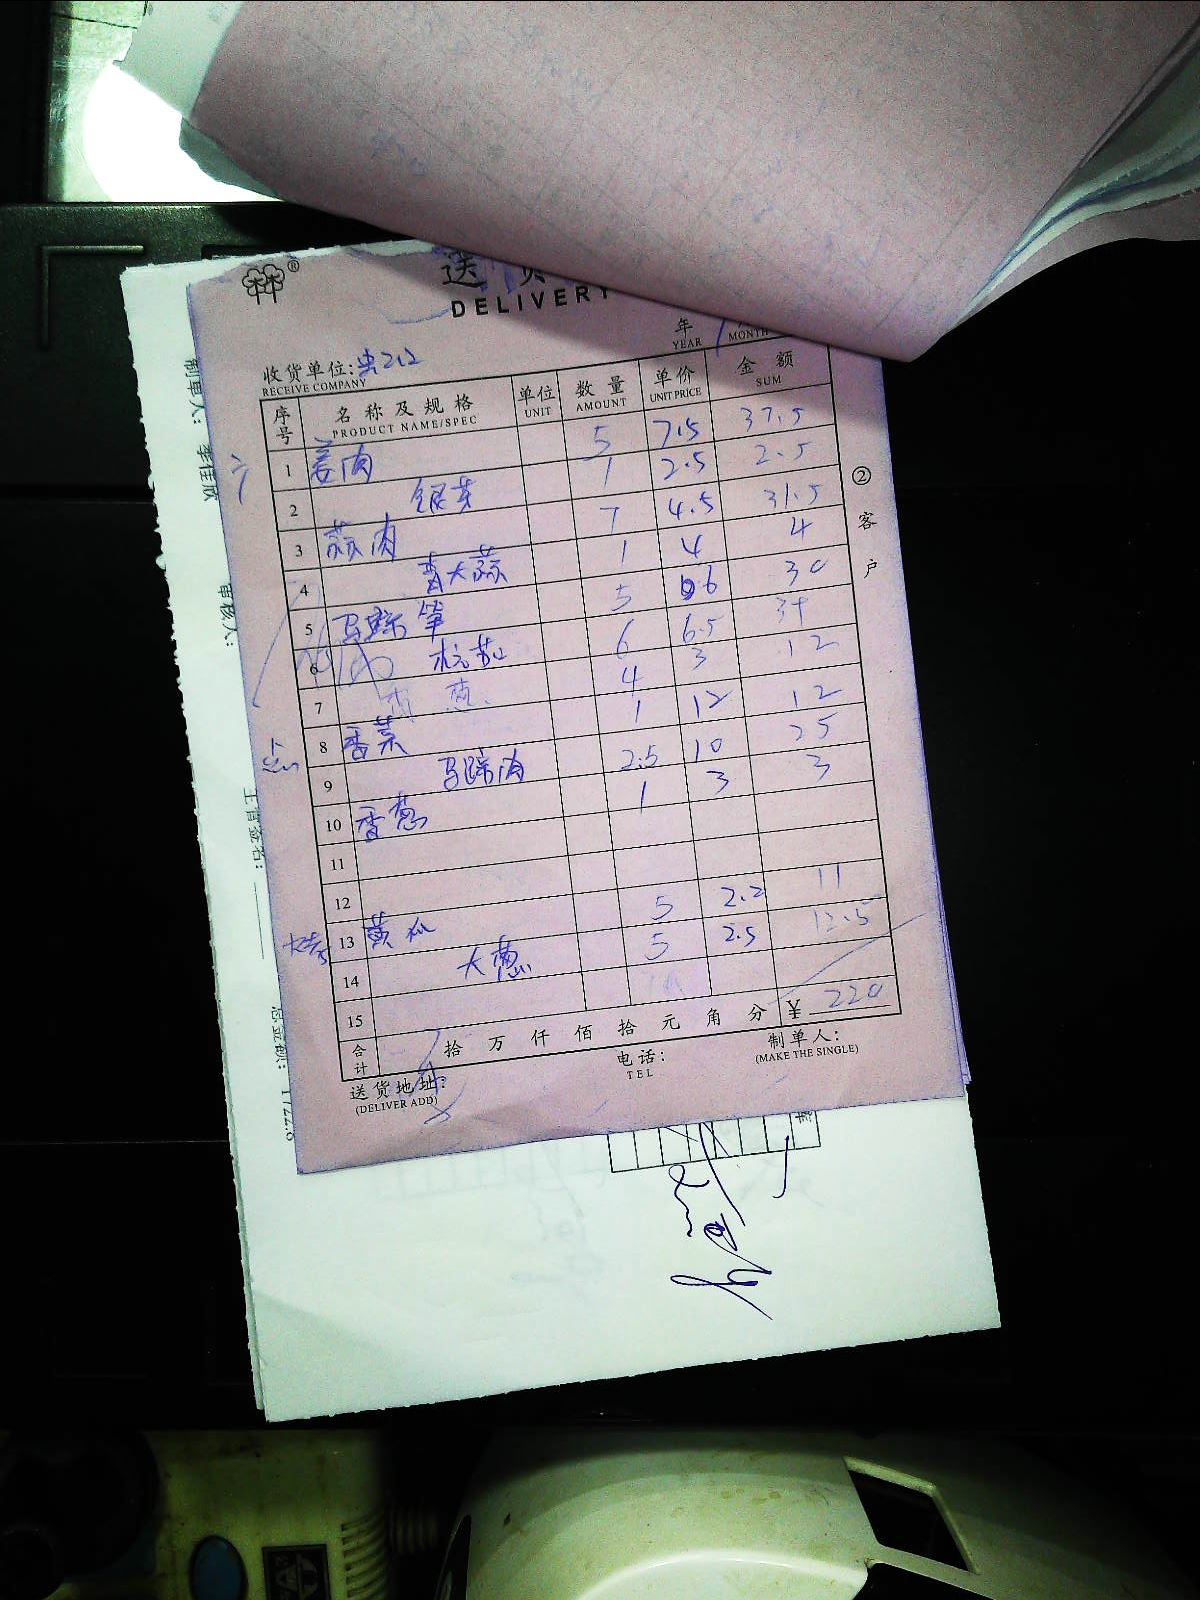 送 货
DELIVERY
年 YEAR MONTH
收货单位:
RECEIVE COMPANY
序号 名称及规格 PRODUCT NAME/SPEC 单位 UNIT 数量 AMOUNT 单价 UNIT PRICE 金额 SUM
1 姜肉 5 7.5 37.5
2 银芽 1 2.5 2.5
3 蒜肉 7 4.5 31.5
4 青大蒜 1 4 4
5 马蹄笋 5 6 30
6 杭茄 6 6.5 39
7 4 3 12
8 香菜 1 12 12
9 马蹄肉 2.5 10 25
10 香葱 1 3 3
11
12
13 黄瓜 5 2.2 11
14 大葱 5 2.5 12.5
15
合计 拾 万 仟 佰 拾 元 角 分 ¥ 220
送货地址:
(DELIVER ADD)
电话:
TEL
制单人:
(MAKE THE SINGLE)
②客户
制单人:
审核人:
主管签名: